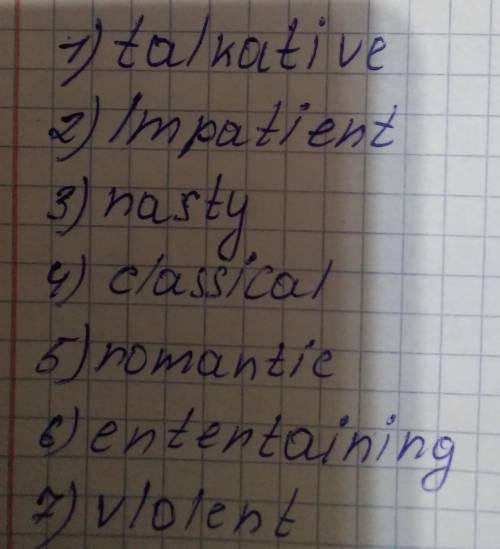 1) talkative
2) Impatient
3) nasty
4) classical
5) romantic
6) entertaining
7) violent